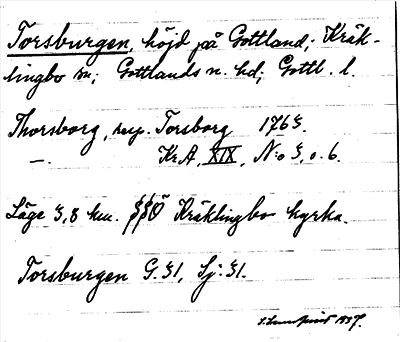 Torsburgen, höjd på Gottland; Kräk-
lingbo sn; Gottlands n. hd; Gottl. l.
Thorsborg, resp. Torsborg 1765.
—. Kr.A, XIX, N:o 5, o. 6.
Läge 3,8 km. SSÖ Kräklingbo kyrka.
Torsburgen G. 31, Sj: 31.
1937.